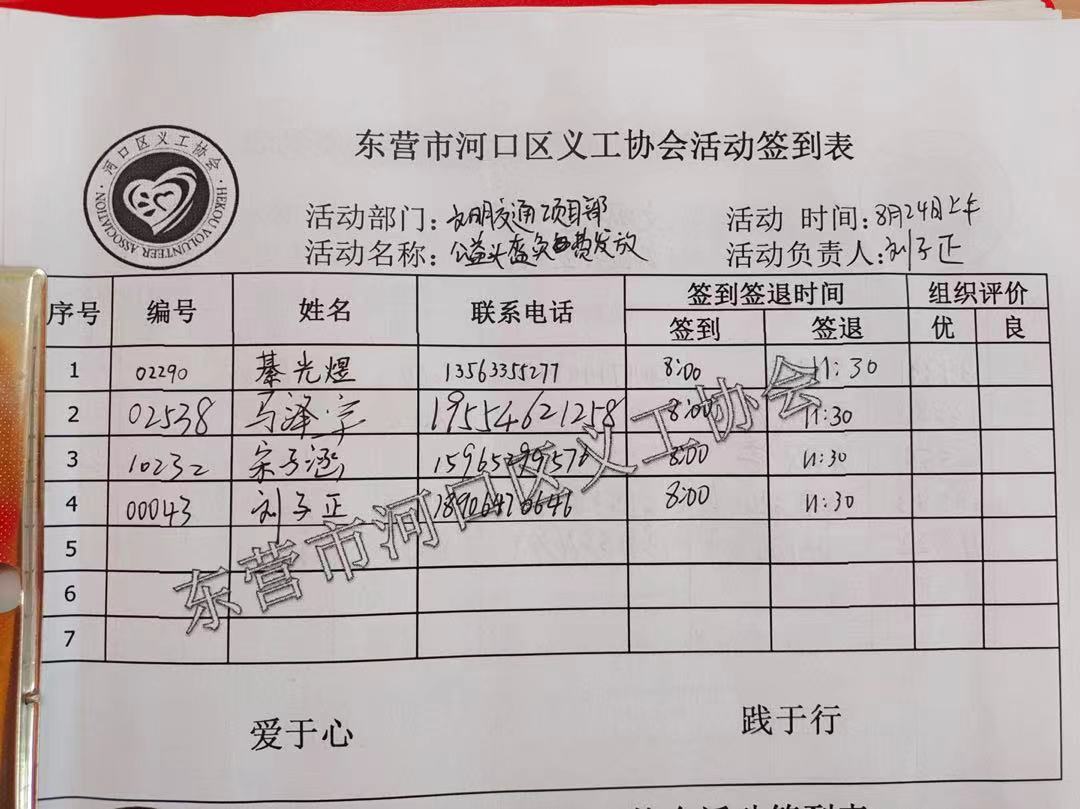 东营市河口区义工协会活动签到表
河口区义工协会
HEKOU VOLUNTEER ASSOCIATION
活动部门：文明交通项目部 活动 时间：8月24日上午
活动名称：公益头盔免费发放 活动负责人：刘子正
序号 编号 姓名 联系电话 签到签退时间 组织评价
签到 签退 优 良
1 02290 綦光煜 13563355277 8:00 11:30
2 02538 马泽宇 19554621258 8:00 11:30
3 10232 宗子涵 8:00 11:30
4 00043 刘子正 18906470646 8:00 11:30
5
6
7
东营市河口区义工协会
爱于心 践于行